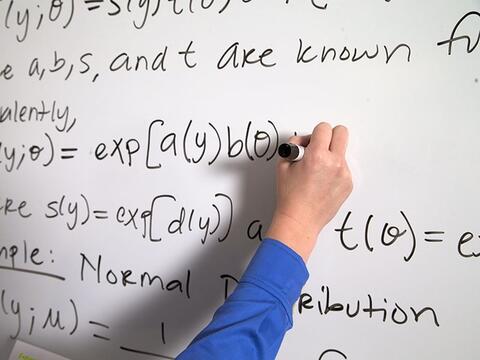 (y;θ) = s(y)t(θ)
e a,b,s, and t are known
alently,
(y;θ) = exp[a(y)b(θ)
re s(y) = exp[d(y)] a t(θ) = e
mple: Normal D ribution
(y;μ) = 1